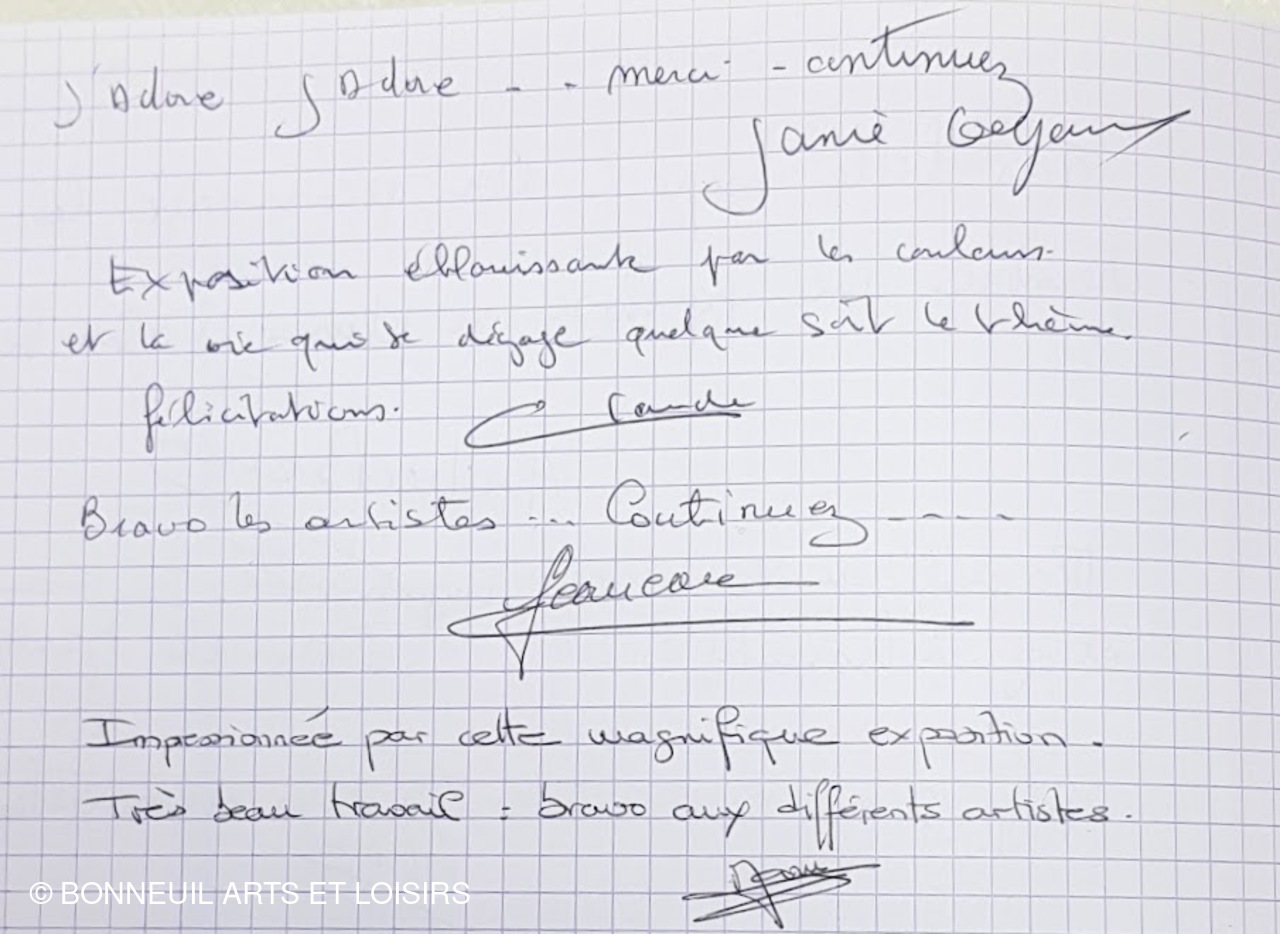 J'Adore J'Adore - - merci - continuez
Janie
Exposition éblouissante par les couleurs.
et la vie qui se dégage quelque soit le thème.
félicitations.
Bravo les artistes ... Continuez ----
Impressionnée par cette magnifique exposition.
Très beau travail : bravo aux différents artistes.
© BONNEUIL ARTS ET LOISIRS